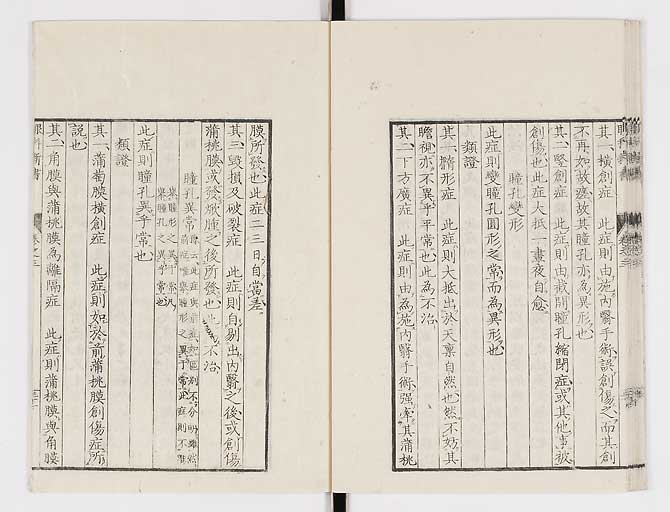 其一橫創症　此症則由施内翳手術誤創傷之而其創
不再如故癒故其瞳孔亦為異形也
其二竪創症　此症則由截開瞳孔縮閉症或其他事被
創傷也此症大抵一晝夜自愈
瞳孔變形
此症則變瞳孔圓形之常而為異形也
類證
其一精形症　此症則大抵出於天稟自然也然不妨其
瞻視亦不異乎平常也此為不治
其二下方廣症　此症則由為施内翳手術强牽其蒲桃
膜所發也此症二三日自常差
其三毀損及破裂症　此症則自剔出内翳之後或創傷
蒲桃膜或發焮腫之後所發也此不治
瞳孔異常
此症則瞳孔異乎常也
類證
其一蒲萄膜橫創症　此症則如於前蒲桃膜創傷症所
說也
其二角膜與蒲桃膜為離隔症　此症則蒲桃膜與角膜
眼科新書　卷之三